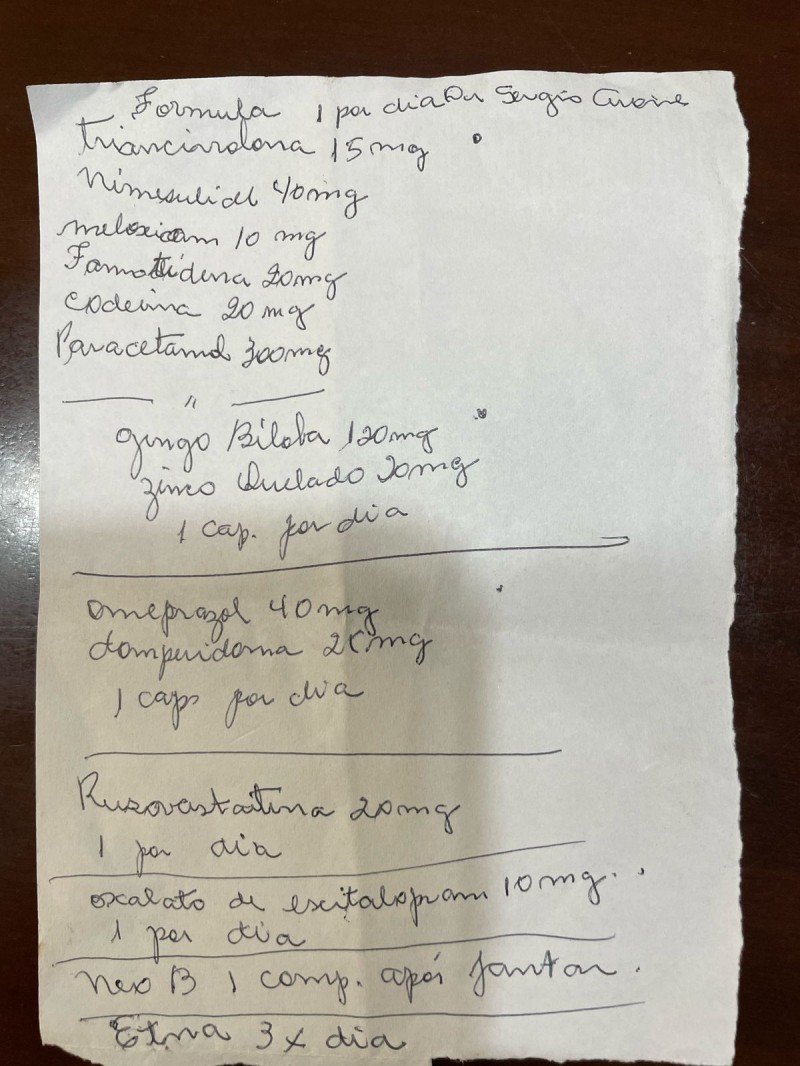 Formula 1 por dia Dr Sergio
triancinolona 15mg
Nimesulidl 40mg
meloxicam 10 mg
Famotidina 20mg
codeina 20 mg
Paracetamol 300mg
"
gingo Biloba 120mg
zinco Quelado 20mg
1 cap. por dia
omeprazol 40mg
domperidona 25mg
1 caps por dia
Ruzovastatina 20mg
1 por dia
oxalato de escitalopram 10mg.
1 por dia
Nexo B 1 comp. após jantar.
Etna 3 x dia